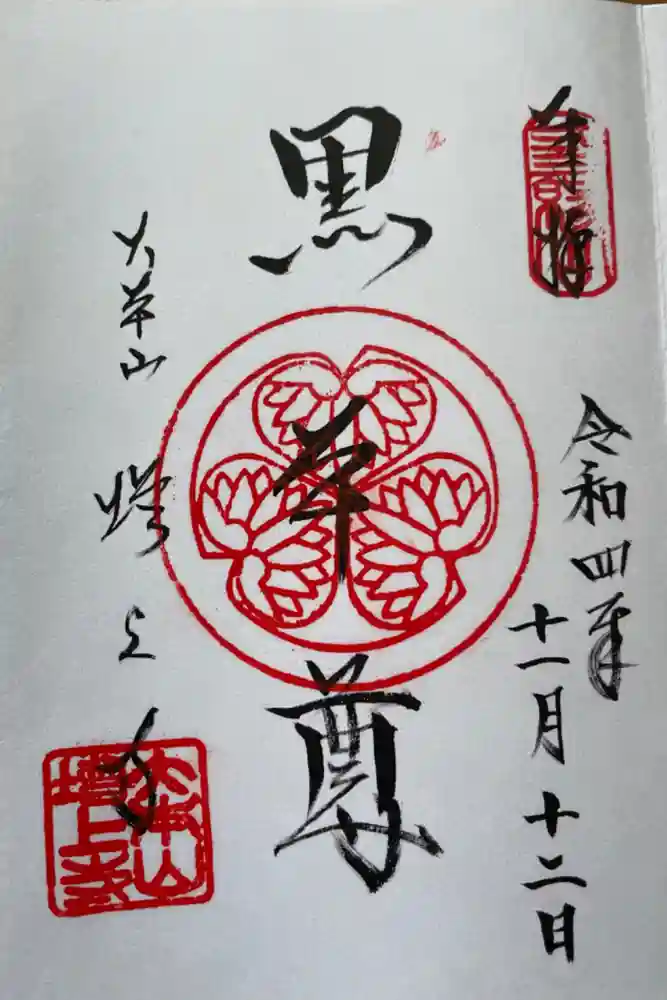 奉拝
令和四年
十一月十二日
黒本尊
大本山
増上寺
大本山
増上寺